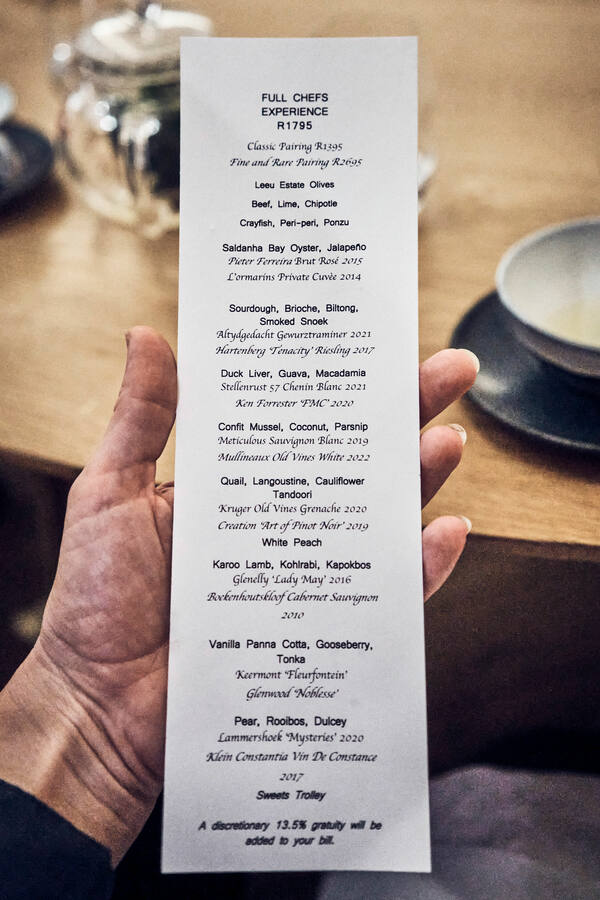 FULL CHEFS
EXPERIENCE
R1795
Classic Pairing R1395
Fine and Rare Pairing R2695
Leeu Estate Olives
Beef, Lime, Chipotle
Crayfish, Peri-peri, Ponzu
Saldanha Bay Oyster, Jalapeño
Pieter Ferreira Brut Rosé 2015
L'ormarins Private Cuvèe 2014
Sourdough, Brioche, Biltong,
Smoked Snoek
Altydgedacht Gewurztraminer 2021
Hartenberg 'Tenacity' Riesling 2017
Duck Liver, Guava, Macadamia
Stellenrust 57 Chenin Blanc 2021
Ken Forrester 'FMC' 2020
Confit Mussel, Coconut, Parsnip
Meticulous Sauvignon Blanc 2019
Mullineaux Old Vines White 2022
Quail, Langoustine, Cauliflower
Tandoori
Kruger Old Vines Grenache 2020
Creation 'Art of Pinot Noir' 2019
White Peach
Karoo Lamb, Kohlrabi, Kapokbos
Glenelly 'Lady May' 2016
Boekenhoutskloof Cabernet Sauvignon
2010
Vanilla Panna Cotta, Gooseberry,
Tonka
Keermont 'Fleurfontein'
Glenwood 'Noblesse'
Pear, Rooibos, Dulcey
Lammershoek 'Mysteries' 2020
Klein Constantia Vin De Constance
2017
Sweets Trolley
A discretionary 13.5% gratuity will be
added to your bill.